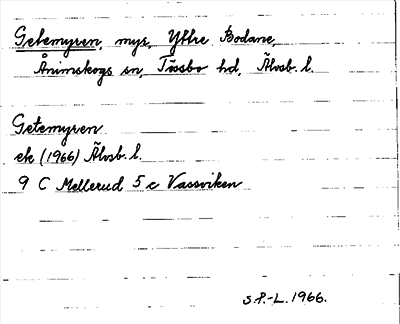 Getemyren, mys, Yttre Bodane,
Ånimskogs sn, Tössbo hd, Älvsb. l.
Getemyren
ek (1966) Älvsb. l.
9 C Mellerud 5 c Vassviken
S.P.-L. 1966.